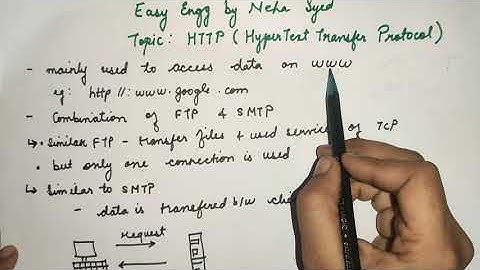 Easy Engg by Neha Syed
Topic: HTTP (HyperText Transfer Protocol)
- mainly used to access data on www
eg: http //: www.google.com
- Combination of FTP & SMTP
↳ • Similar FTP - transfer files & used services of TCP
• but only one connection is used
↳ Similar to SMTP
- data is transfered b/w
request